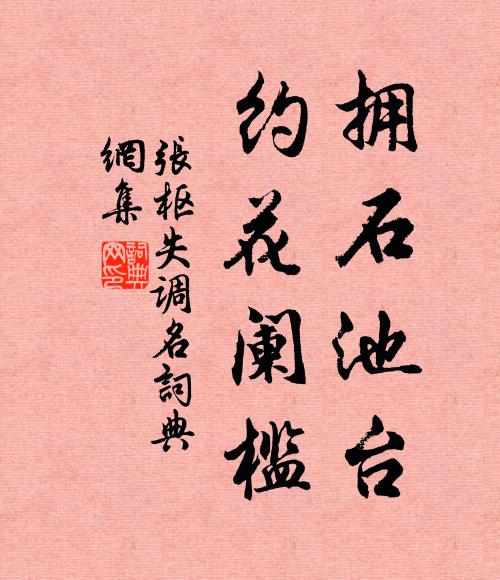 拥石池台
约花阑槛
張枢失调名詞典
網集
詞典網印